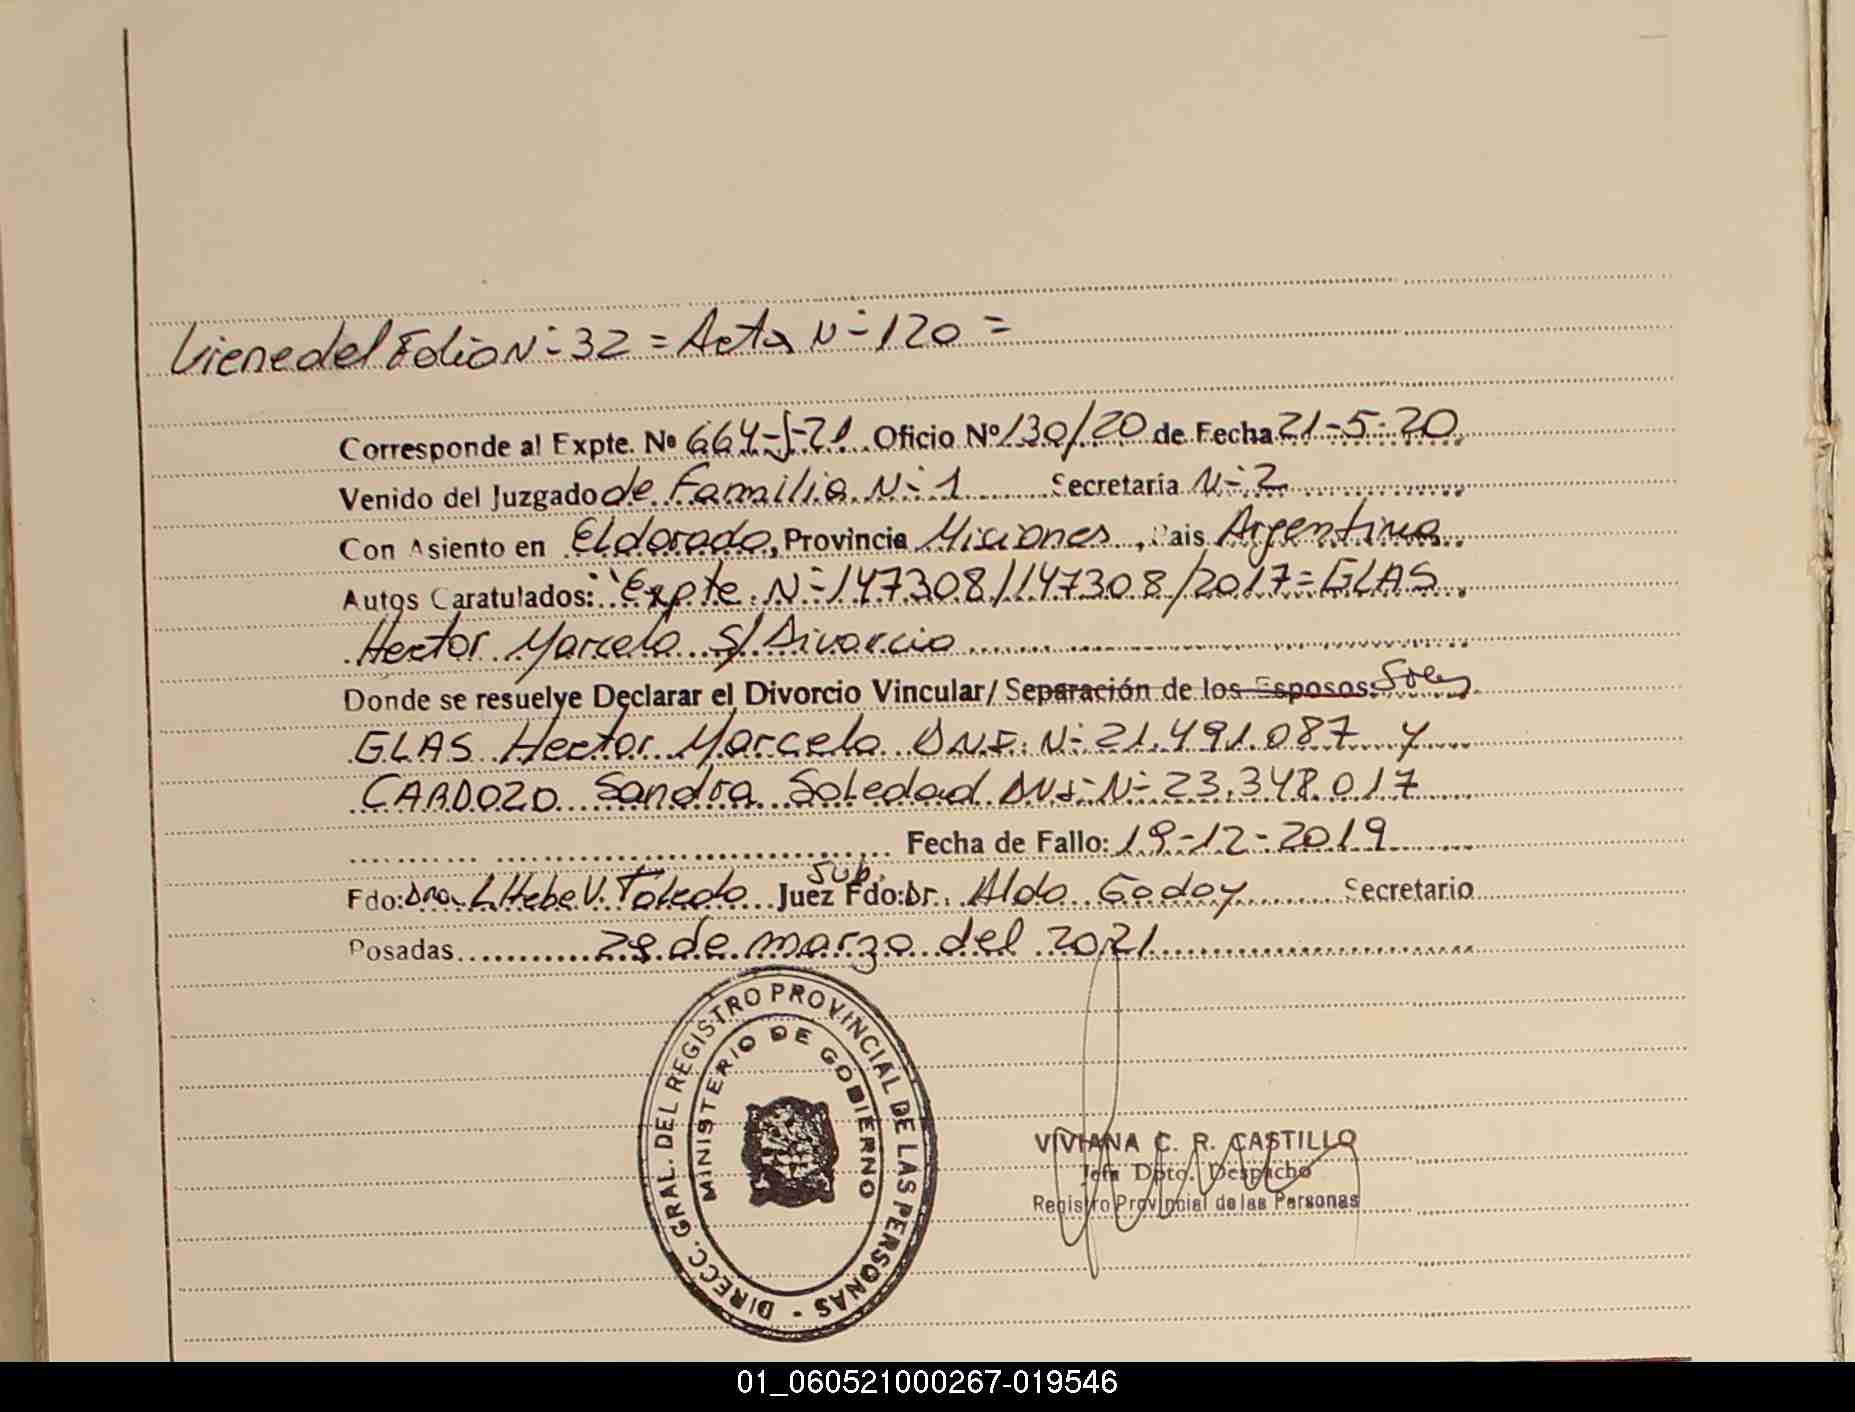 Viene del Folio N- 32 = Acta N- 120 =
Corresponde al Expte. Nº 664-J-21 Oficio Nº 130/20 de Fecha 21-5-20
Venido del Juzgado de Familia N- 1 Secretaría N- 2
Con Asiento en Eldorado, Provincia Misiones, Pais Argentina
Autos Caratulados: "Expte. N- 147308/147308/2017= GLAS
Hector Marcelo S/ Divorcio
Donde se resuelve Declarar el Divorcio Vincular/ Separación de los Esposos:
GLAS Hector Marcelo DNI. N- 21.491.087 y
CARDOZO Sandra Soledad DNI- N- 23.348.017
Fecha de Fallo: 19-12-2019
Fdo: Dra. L. Hebe V. Toledo Juez Sub. Fdo: Dr. Aldo Godoy Secretario
Posadas 29 de marzo del 2021
DIRECC. GRAL. DEL REGISTRO PROVINCIAL DE LAS PERSONAS -
MINISTERIO DE GOBIERNO
VIVIANA C. R. CASTILLO
Jefa Dpto. Despacho
Registro Provincial de las Personas
01_060521000267-019546